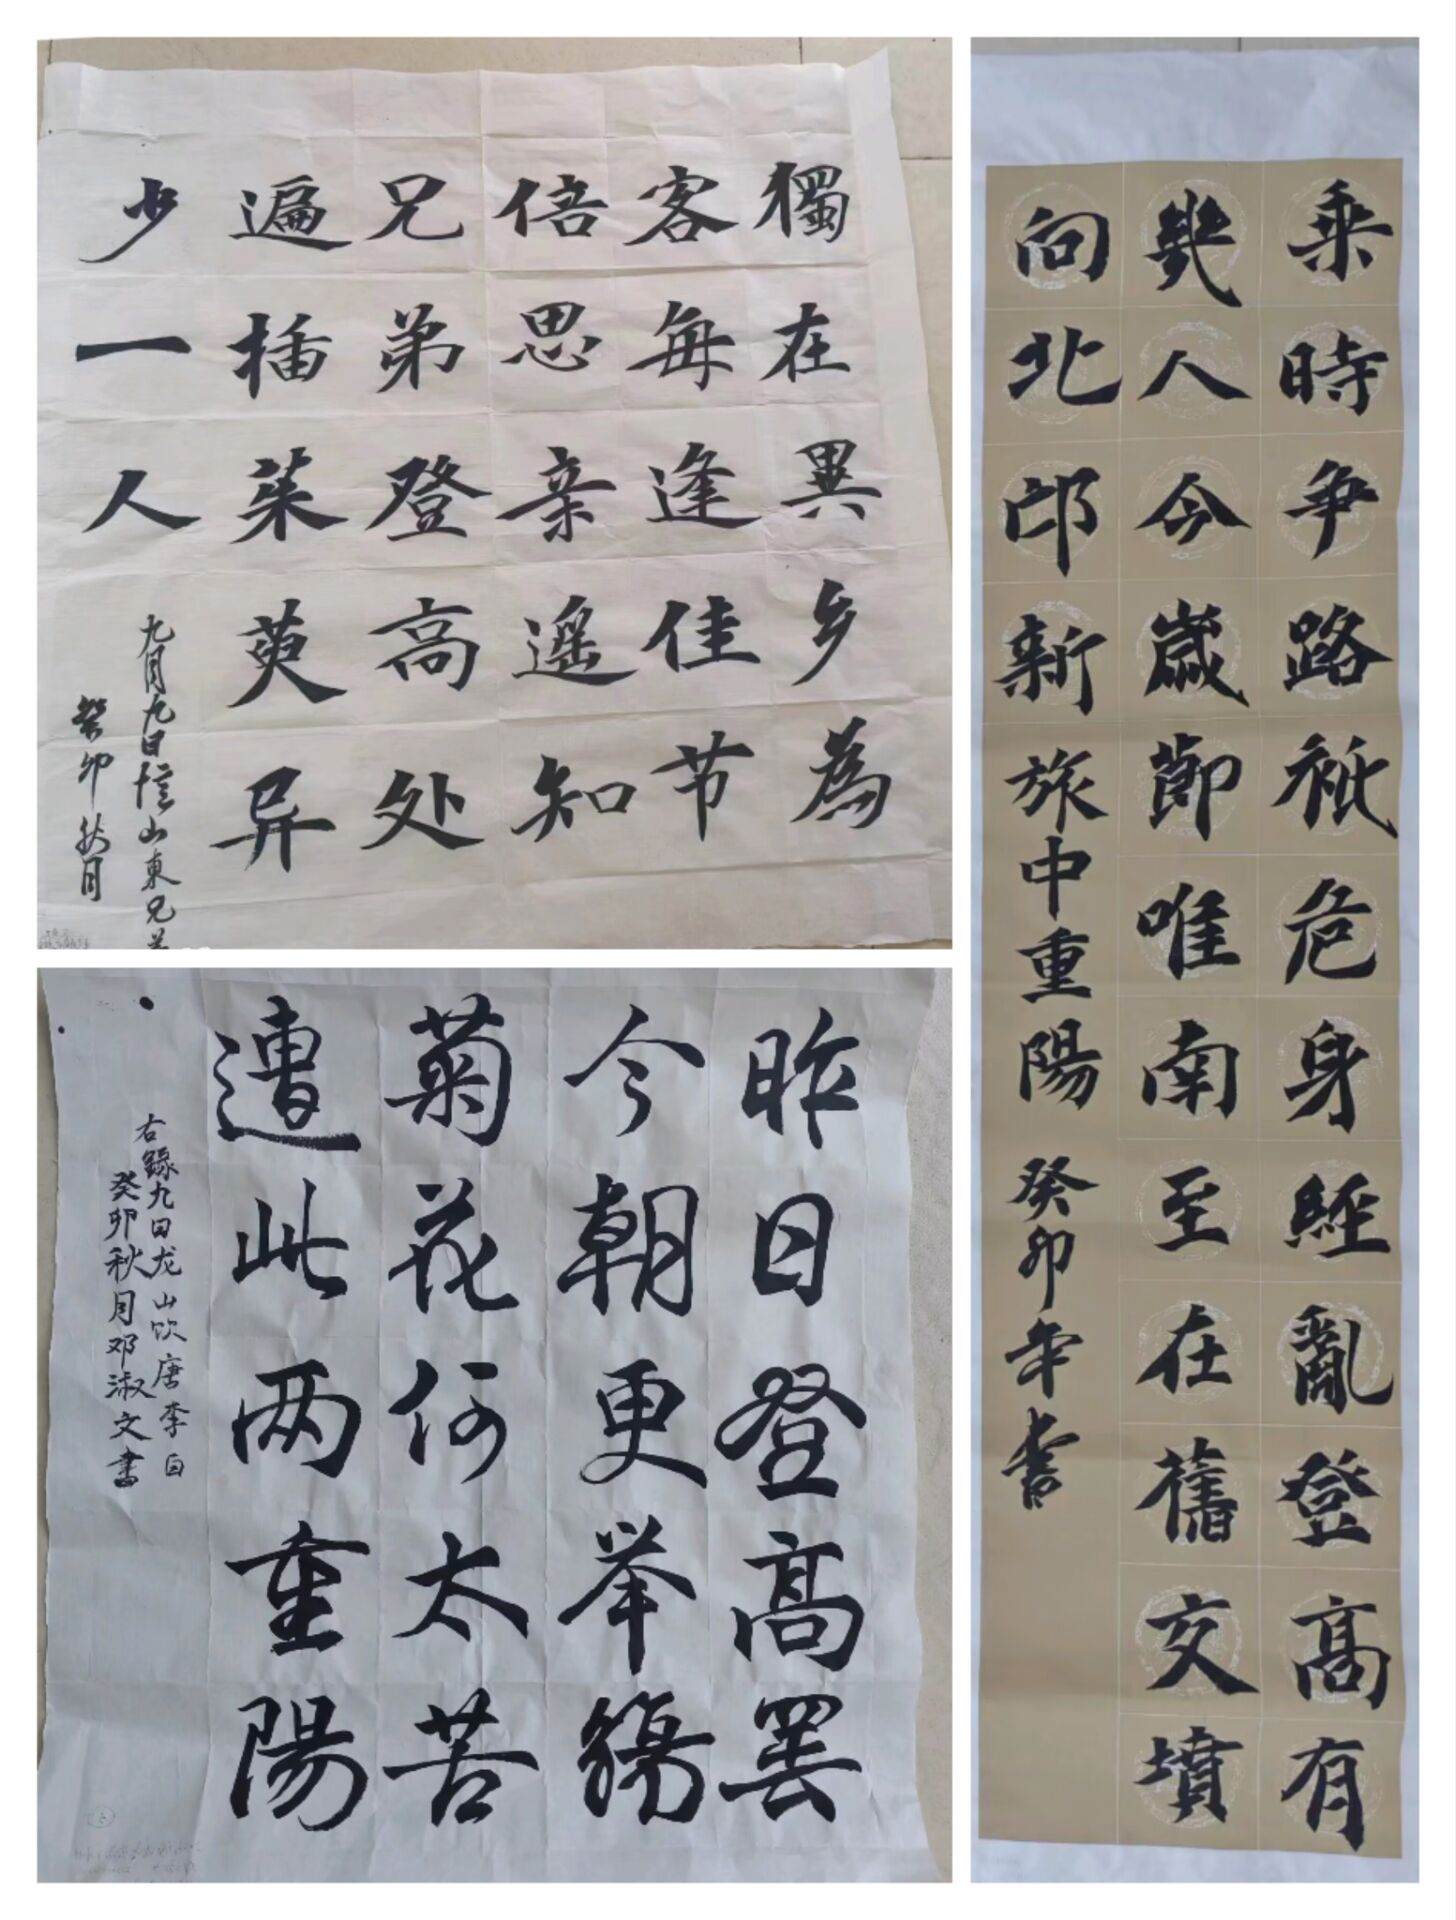 獨在異乡為
客每逢佳节
倍思亲遥知
兄弟登高处
遍插茱萸异
少一人
九月九日憶山東兄弟
癸卯秋月
昨日登高罢
今朝更举觴
菊花何太苦
遭此两重陽
右録九日龙山饮唐李白
癸卯秋月邓淑文書
乘時争路祇危身經亂登高有
幾人今嵗節唯南至在舊交墳
向北邙新旅中重陽 癸卯年书